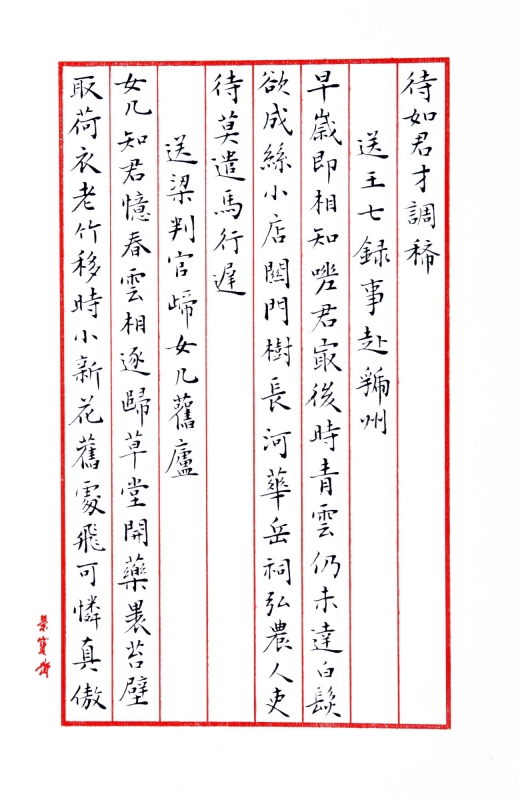 待如君才調稀
送王七録事赴虢州
早歳即相知嗟君最後時青雲仍未達白髮
欲成絲小店關門樹長河華岳祠弘農人吏
待莫遣馬行遲
送梁判官歸女几舊廬
女几知君憶春雲相逐歸草堂開藥裹苔壁
取荷衣老竹移時小新花舊處飛可憐真傲
榮寶齋